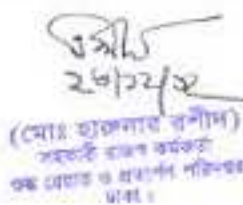 ২৮/১২/২
(মোঃ হারুনার রশীদ)
সহকারী রাজস্ব কর্মকর্তা
শুল্ক রেয়াত ও প্রত্যর্পণ পরিদপ্তর
ঢাকা।